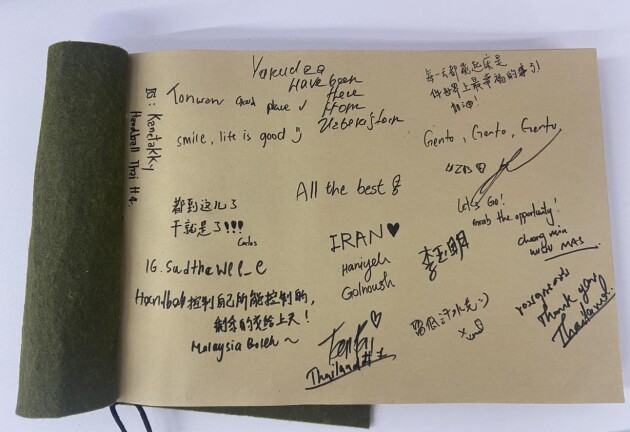 BS: Kanetakky
Handball Thai #4.
Yakudza
Have been
Here
from
Uzbekistan
Tonwan Good place ✓
smile, life is good :)
都到这儿了
干就是了!!!
Carlos
IG. Sudthewell_e
Handball 控制自己所能控制的,
剩余的交给上天!
Malaysia Boleh ~
All the best
IRAN ♥
Haniyeh
Golnoush
Thailand
每一天都能起床是
件世界上最幸福的事!
加油!
Gento, Gento, Gento
UZB
Let's Go!
Grab the opportunity!
chong min
wushu MAS
李玉明
:)
Thank you,
Thailand!